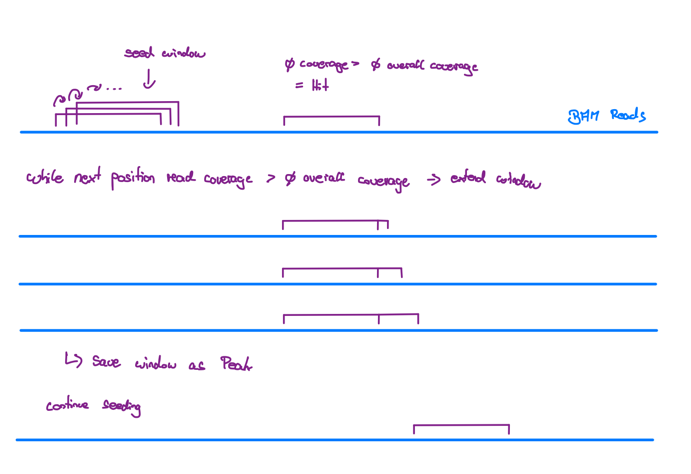 seed window
...
ø coverage > ø overall coverage
= Hit
BAM Reads
while next position read coverage > ø overall coverage → extend window
↳ Save window as Peak
continue seeding